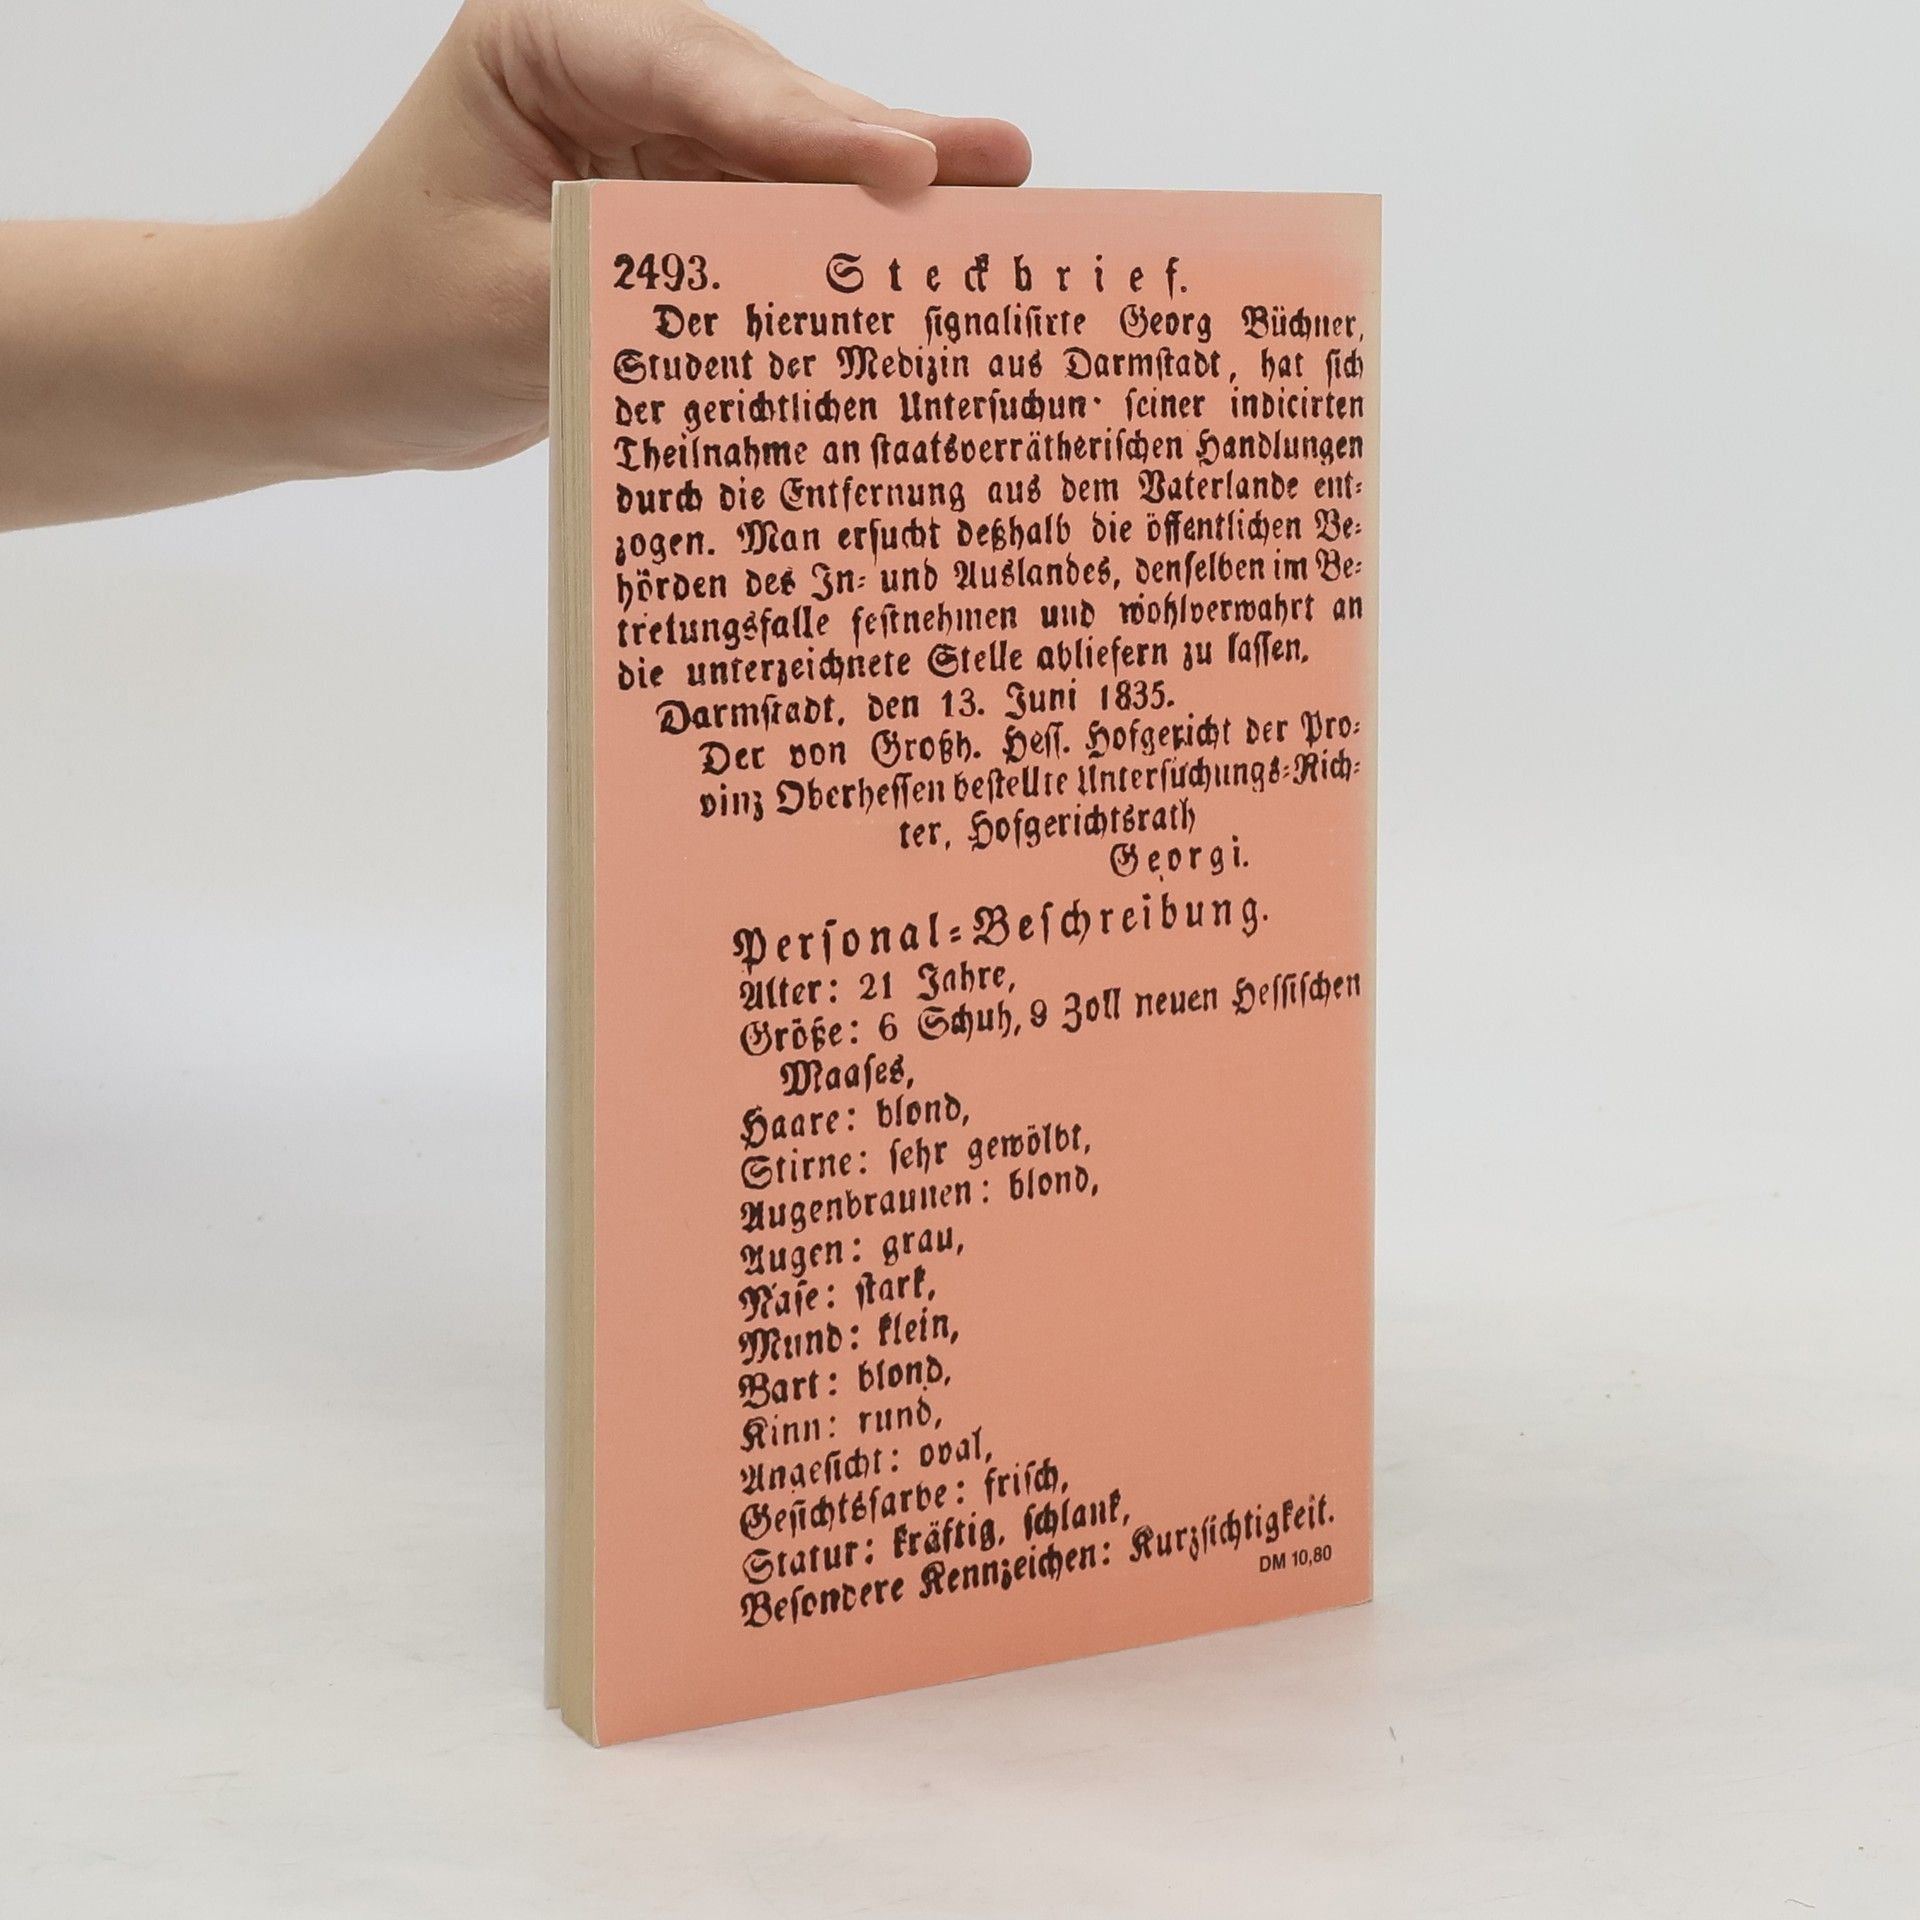 2493. Steckbrief.
Der hierunter signalisirte Georg Büchner,
Student der Medizin aus Darmstadt, hat sich
der gerichtlichen Untersuchun· seiner indicirten
Theilnahme an staatsverrätherischen Handlungen
durch die Entfernung aus dem Vaterlande ent-
zogen. Man ersucht deßhalb die öffentlichen Be-
hörden des In- und Auslandes, denselben im Be-
tretungsfalle festnehmen und wohlverwahrt an
die unterzeichnete Stelle abliefern zu lassen.
Darmstadt, den 13. Juni 1835.
Der von Großh. Hess. Hofgericht der Pro-
vinz Oberhessen bestellte Untersuchungs-Rich-
ter, Hofgerichtsrath
Georgi.
Personal-Beschreibung.
Alter: 21 Jahre,
Größe: 6 Schuh, 9 Zoll neuen Hessischen
Maases,
Haare: blond,
Stirne: sehr gewölbt,
Augenbraunen: blond,
Augen: grau,
Nase: stark,
Mund: klein,
Bart: blond,
Kinn: rund,
Angesicht: oval,
Gesichtsfarbe: frisch,
Statur: kräftig, schlank,
Besondere Kennzeichen: Kurzsichtigkeit.
DM 10,80